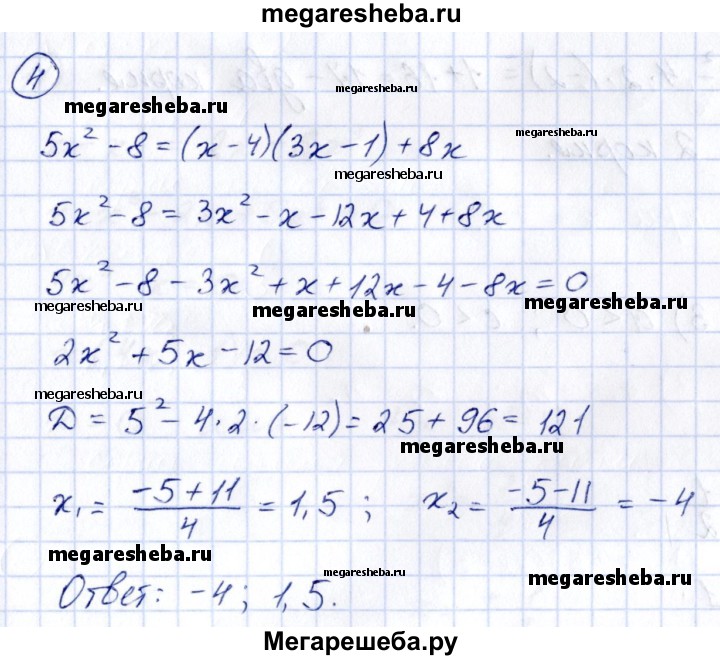 megaresheba.ru
4
megaresheba.ru
megaresheba.ru
megaresheba.ru
5x² - 8 = (x - 4)(3x - 1) + 8x
megaresheba.ru
5x² - 8 = 3x² - x - 12x + 4 + 8x
5x² - 8 - 3x² + x + 12x - 4 - 8x = 0
megaresheba.ru
megaresheba.ru
megaresheba.ru
2x² + 5x - 12 = 0
megaresheba.ru
Д = 5² - 4·2·(-12) = 25 + 96 = 121
megaresheba.ru
x₁ = (-5+11)/4 = 1,5 ; x₂ = (-5-11)/4 = -4
megaresheba.ru
megaresheba.ru
megaresheba.ru
Ответ: -4; 1,5.
Мегарешеба.ру